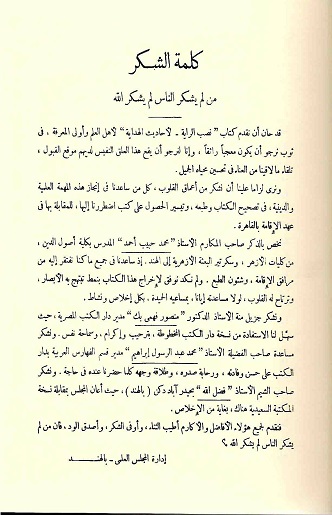 كلمة الشكر
من لم يشكر الناس لم يشكر الله
قد حان أن نقدم كتاب " نصب الراية ـ لأحاديث الهداية " لأهل العلم وأولى المعرفة ، فى
ثوب نرجو أن يكون معجباً رائقاً ، وإنا لنرجو أن يقع هذا العلق النفيس لديهم موقع القبول ،
تلقاء ما لاقينا من العناء فى تحسين محياه الجميل .
ونرى لزاما علينا أن نشكر من أعماق القلوب ، كل من ساعدنا فى إنجاز هذه المهمة العلمية
والدينية ، فى تصحيح الكتاب وطبعه ، وتيسير الحصول على كتب اضطررنا إليها ، للمقابلة بها فى
عهد الإقامة بالقاهرة .
نخص بالذكر صاحب المكارم الأستاذ " محمد حبيب أحمد " المدرس بكلية أصول الدين ،
من كليات الأزهر ، وسكرتير البعثة الأزهرية إلى الهند . إذ ساعدنا فى جميع ما كنا نفتقر إليه من
مرافق الإقامة ، وشئون الطبع . ولم نكد نوفق لإخراج هذا الكتاب بنمط تبتهج به الأبصار ،
وترتاح له القلوب ، لولا مساعدته إيانا ، بمساعيه الحميدة ، بكل إخلاص ونشاط .
ونشكر جزيل منة الأستاذ الدكتور " منصور فهمى بك " مدير دار الكتب المصرية ، حيث
سهّل لنا الاستفادة من نسخة دار الكتب المخطوطة ، بترحيب وإكرام ، وسماحة نفس . ونشكر
مساعدة صاحب الفضيلة الأستاذ " محمد عبد الرسول إبراهيم " مدير قسم الفهارس العربية بدار
الكتب على حسن وفادته ، ورحابة صدره ، وطلاقة وجهه كلما حضرنا عنده فى حاجة . ونشكر
صاحب الشيم الأستاذ " فضل الله " بحيدر آباد دكن ( بالهند ) ، حيث أعان المجلس بمقابلة نسخة
المكتبة السعيدية هناك ، بغاية من الإخلاص .
فنقدم لجميع هؤلاء الأفاضل والأكارم أطيب الثناء ، وأوفى الشكر ، وأصدق الود ، فان من لم
يشكر الناس لم يشكر الله ؟
إدارة المجلس العلمى ـ بالهند